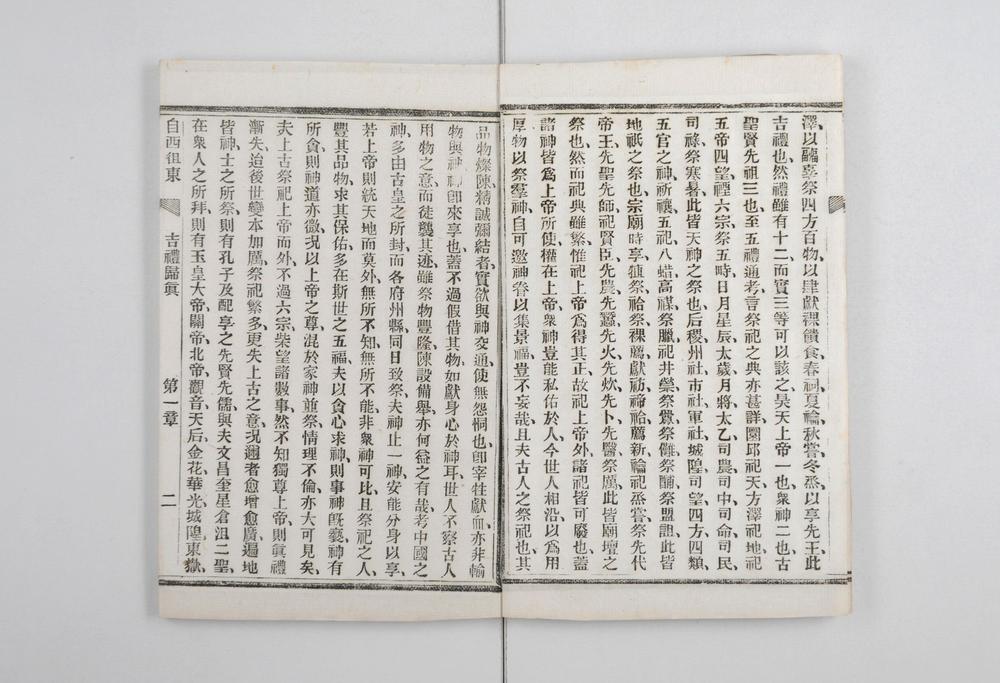 澤、以疈辜祭四方百物、以肆獻祼饋食、春祠、夏禴、秋嘗、冬烝、以享先王、此
吉禮也、然禮雖有十二、而實三等可以該之、昊天上帝一也、衆神二也、古
聖賢先祖三也、至五禮通考言祭祀之典、亦甚詳、圜邱祀天、方澤祀地、祀
五帝、四望、禋六宗、祭五時、日月、星辰、太歲、月將、太乙、司農、司中、司命、司民、
司祿、祭寒暑、此皆天神之祭也、后稷、州社、市社、軍社、城隍、司望、四方、四類、
五官之神、祈禳、五祀、八蜡、高禖、祭臘、祀井、禜祭、儺祭、酺祭、盟詛、此皆
地祇之祭也、宗廟時享、殖祭、祫祭、祼薦、獻祊、禘祫、薦新、禴祀、烝嘗、祭先代
帝王、先聖先師、祀賢臣、先農、先蠶、先火、先炊、先卜、先醫、祭厲、此皆廟壇之
祭也、然而祀典雖繁、惟祀上帝爲得其正、故祀上帝外、諸祀皆可廢也、蓋
諸神皆爲上帝所使、權在上帝、衆神豈能私佑於人、今世人相沿、以爲用
厚物以祭羣神、自可邀神眷、以集景福、豈不妄哉、且夫古人之祭祀也、其
品物燦陳、精誠彌結者、實欲與神交通、使無怨恫也、卽宰牲獻血、亦非輸
物與神、神卽來享也、蓋不過假借其物、如獻身心於神耳、世人不察古人
用物之意、而徒襲其迹、雖祭物豐隆、陳設備舉、亦何益之有哉、考中國之
神、多由古皇之所封、而各府州縣、同日致祭、夫神止一神、安能分身以享、
若上帝則統天地而莫外、無所不知、無所不能、非衆神可比、且祭祀之人、
豐其品物、求其保佑、多在斯世之五福、夫以貪心求神、則事神旣褻、神有
所貪、則神道亦微、況以上帝之尊、混於家神並祭、情理不倫、亦大可見矣、
夫上古祭祀、上帝而外、不過六宗柴望諸數事、然不知獨尊上帝、則眞禮
漸失、迨後世變本加厲、祭祀繁多、更失上古之意、況邇者愈增愈廣、遍地
皆神、士之所祭、則有孔子及配享之先賢先儒、與夫文昌、奎星、倉沮二聖、
在衆人之所拜、則有玉皇大帝、關帝、北帝、觀音、天后、金花、華光、城隍、東嶽、
自西徂東 吉禮歸眞 第一章 二